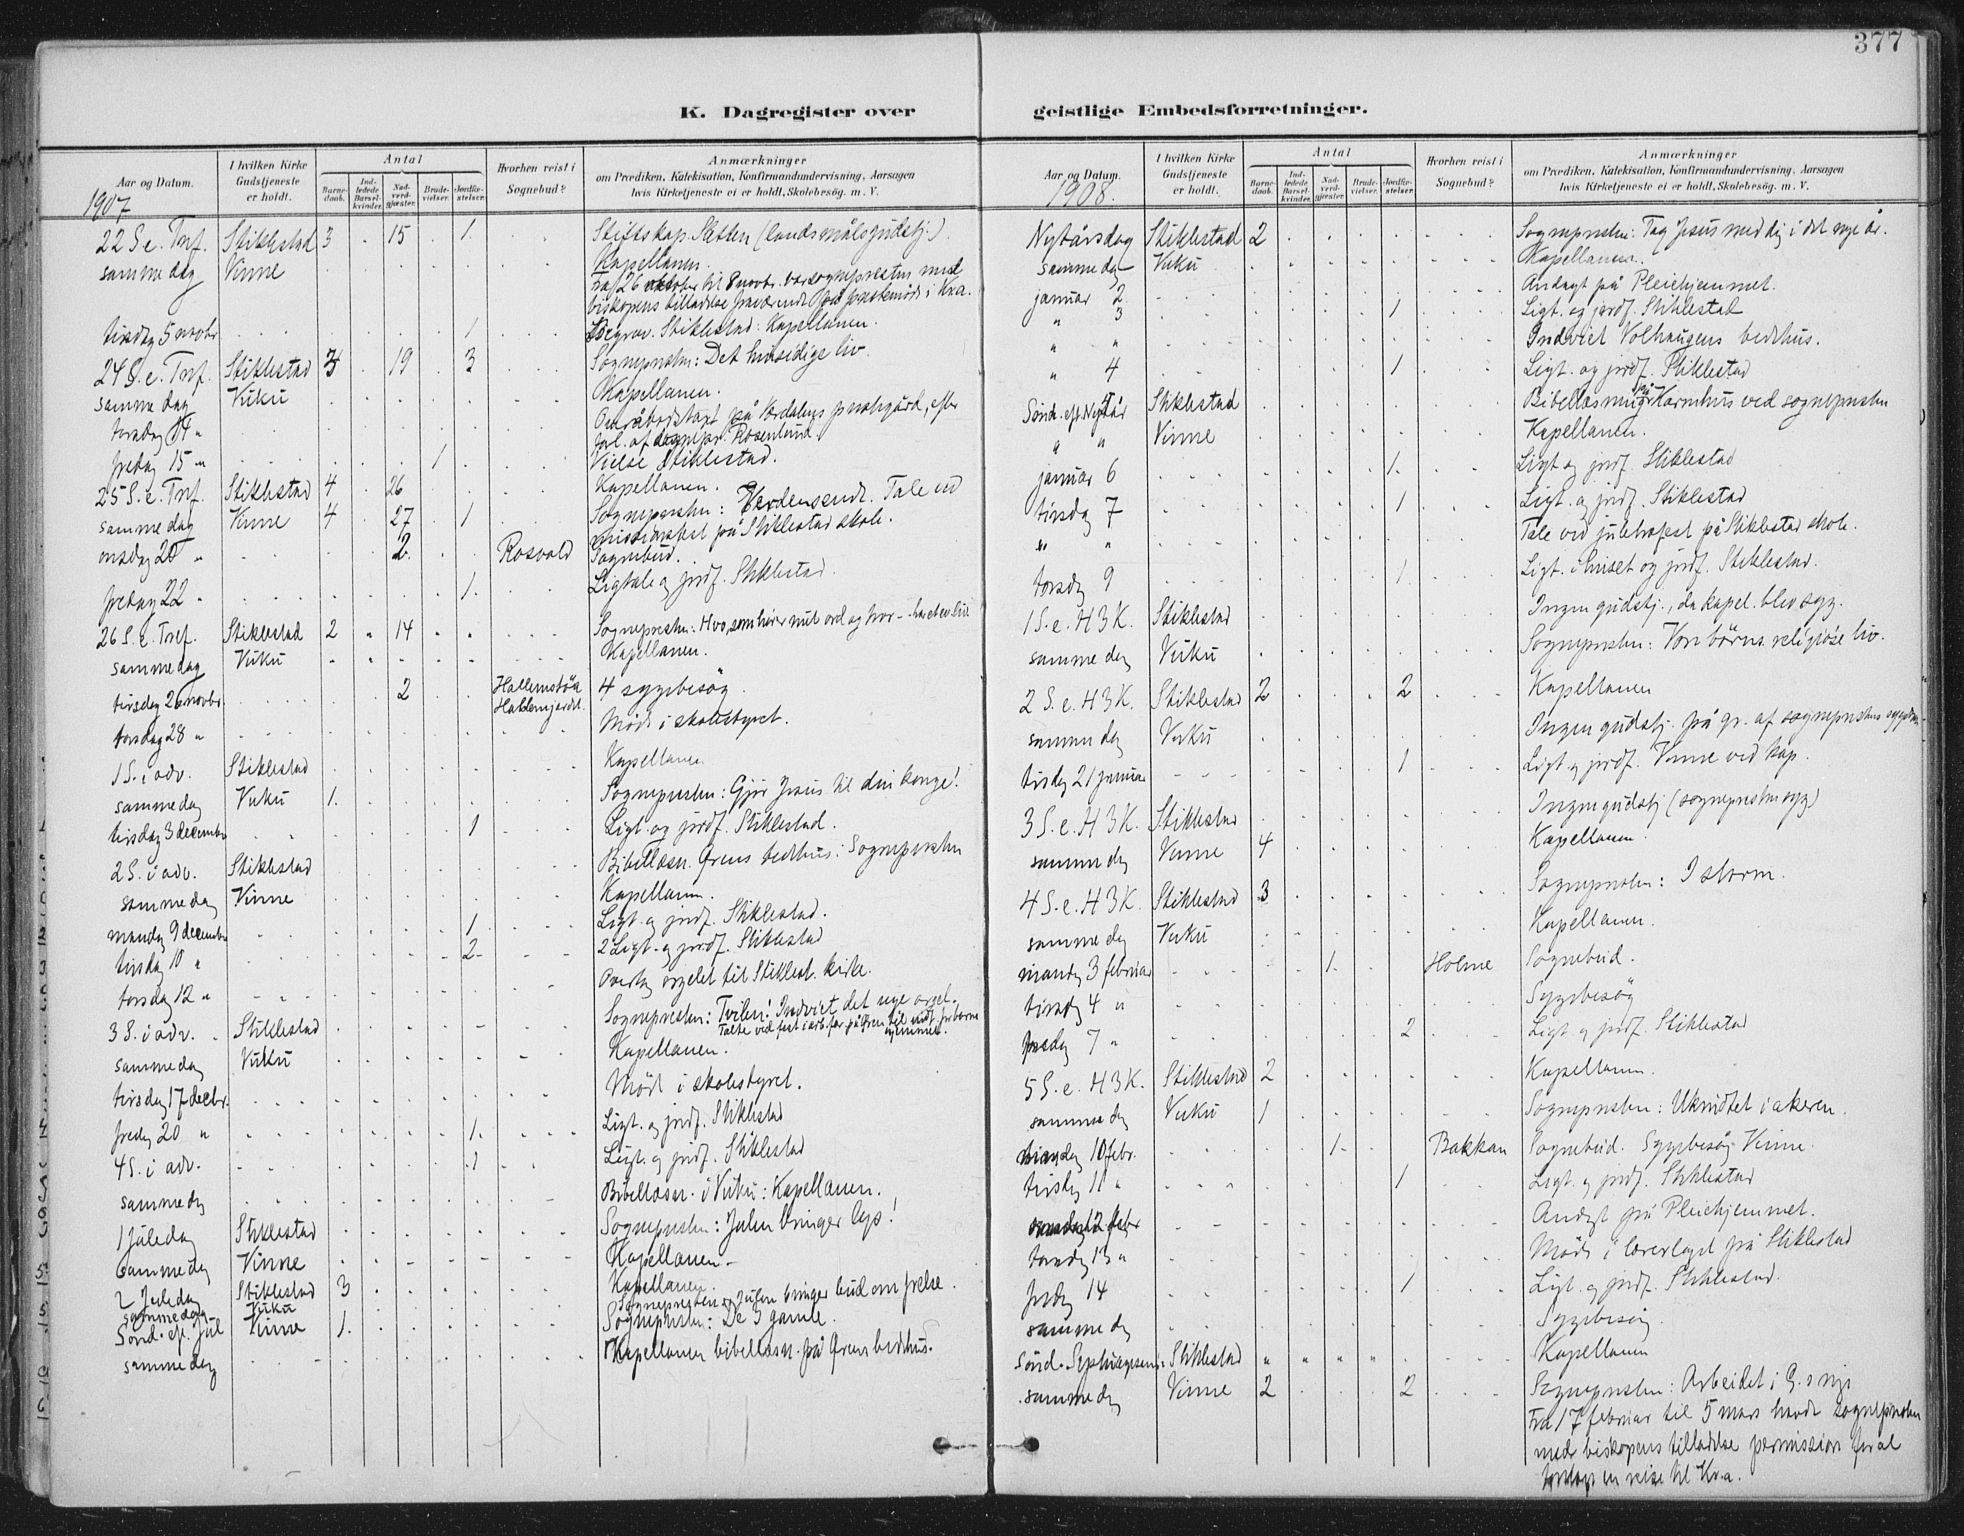 377
K. Dagregister over geistlige Embedsforretninger.
Aar og Datum. I hvilken Kirke Gudstjeneste er holdt. Antal Barnedaab. Indledede Barselkvinder. Nadverdgjæster. Brudevielser. Jordfæstelser. Hvorhen reist i Sognebud? Anmærkninger om Prædiken, Katekisation, Konfirmandundervisning, Aarsagen hvis Kirketjeneste ei er holdt, Skolebesøg. m. V.
1907
22 S. e. Tref. Stiklestad 3 . 15 . 1. Stiftskap. Sletten (landsmålsgudstj.).
samme dag Vinne Kapellanen.
Fra 26 oktober til 8 novbr. var sognepresten med
biskopens tilladelse fraværende på prestemøde i Kr.a.
tirsdag 5 novbr. 1 Begrav. Stiklestad: Kapellanen.
24 S. e. Tref. Stiklestad 3 19 3 Sognepresten: Det hinsidige liv.
samme dag Vuku Kapellanen.
torsdag 14 " Overåbodstagt på Verdalens prestegård, efter
tal. af sognepr. Rosenlund.
fredag 15 " 1 Vielse Stiklestad.
25 S. e. Tref. Stiklestad 4 26 Kapellanen.
samme dag Vinne 4 . 27 . 1 Sognepresten: Verdensendt. Tale ved
på Stiklestad skole.
onsdag 20 " 2 Rosvold Sognebud.
fredag 22 " 1. Ligtale og jordf. Stiklestad.
26 S. e. Tref. Stiklestad 2 " 14 " " Sognepresten: Hvo, som hører mit ord og tror - har et ev. liv
samme dag Vuku Kapellanen.
tirsdag 26 novbr. 2 Hallemstøa 4 sygebesøg.
torsdag 28 " Møde i skolestyret.
1 S. i adv. Stiklestad Kapellanen
samme dag Vuku 1. Sognepresten: Gjør Jesus til din konge!
tirsdag 3 decembr 1 Ligt. og jordf. Stiklestad.
2 S. i adv. Stiklestad Bibellæsn. Ørens bedhus: Sognepresten
samme dag Vinne Kapellanen.
mandag 9 decembr 1 Ligt. og jordf. Stiklestad.
tirsdag 10 " 2 2 Ligt. og jordf. Stiklestad
torsdag 12 " Overtog orgelet til Stiklest. kirke.
3 S. i adv. Stiklestad Sognepresten: Tvilen! Indviet det nye orgel.
samme dag Vuku Kapellanen.
tirsdag 17 decbr. Møde i skolestyret.
fredag 20 " 1. Ligt. og jordf. Stiklestad
4 S. i adv. 1 Ligt. og jordf. Stiklestad
samme dag Bibellæsn. i Vuku: Kapellanen.
1 Juledag Stiklestad Sognepresten: Julen bringer lys!
samme dag Vinne Kapellanen
2 Juledag Stiklestad 3 Kapellanen.
samme dag Vuku Sognepresten: Julen bringer bud om frelse.
Sønd. ef. Jul Vinne 1. Sognepresten: De 3 gamle.
samme dag Kapellanen bibellæsn. på Ørens bedhus.
Aar og Datum. I hvilken Kirke Gudstjeneste er holdt. Antal Barnedaab. Indledede Barselkvinder. Nadverdgjæster. Brudevielser. Jordfæstelser. Hvorhen reist i Sognebud? Anmærkninger om Prædiken, Katekisation, Konfirmandundervisning, Aarsagen hvis Kirketjeneste ei er holdt, Skolebesøg. m. V.
1908.
Nytårsdag Stiklestad 2 Sognepresten: Tag Jesus med dig i det nye år.
samme dag Vuku Kapellanen.
januar 2 Andagt på Pleiehjemmet.
" 3 1 Ligt. og jordf. Stiklestad
" " Indviet Volhaugens bedhus.
" 4 1 Ligt. og jordf. Stiklestad
Sønd. eft. Nytår Stiklestad Bibellæsning på Kornhus ved sognepresten
" " Vinne Kapellanen.
januar 6 1. Ligt. og jordf. Stiklestad
tirsdag 7 1 Ligt. og jordf. Stiklestad
" " Tale ved juletræfest på Stiklestad skole.
torsdag 9 1 Ligt. i huset og jordf. Stiklestad.
1 S. e. H3K. Stiklestad Ingen gudstj., da kapel. blev syg.
samme dag Vuku Sognepresten: Vore børns religiøse liv.
2 S. e. H3K. Stiklestad 2 2 Kapellanen
samme dag Vuku Ingen gudstj. på gr. af sogneprestens sygdom
tirsdag 21 januar 1 Ligt. og jordf. Vinne ved kap.
3 S. e. H3K. Stiklestad Ingen gudstj (sognepresten syg)
samme dag Vinne 4 Kapellanen
4 S. e. H3K. Stiklestad 3 Sognepresten: I storm.
samme dag Vuku Kapellanen.
mandag 3 februar 1. Holme Sognebud.
tirsdag 4 " Sygebesøg
fredag 7 " 2 Ligt. og jordf. Stiklestad
5 S. e. H3K. Stiklestad 2 Kapellanen.
samme dag Vuku 1 Sognepresten: Ukrudtet i akeren.
mandag 10 febr. 1 Bakkan Sognebud. Sygebesøg Vinne.
tirsdag 11 " 1 Ligt. og jordf. Stiklestad
12 febr Andagt på Pleiehjemmet.
torsdag 13 " Møde i lærerlaget på Stiklestad
fredag 14 1 Ligt. og jordf. Stiklestad.
samme dag Sygebesøg
Sønd. Septuagesima Stiklestad Kapellanen
samme dag Vinne 2 2 Sognepresten: Arbeidet i G.s rige
Fra 17 februar til 5 mars havde sognepresten
med biskopens tilladelse permission for at
foretage en reise til Kr.a.